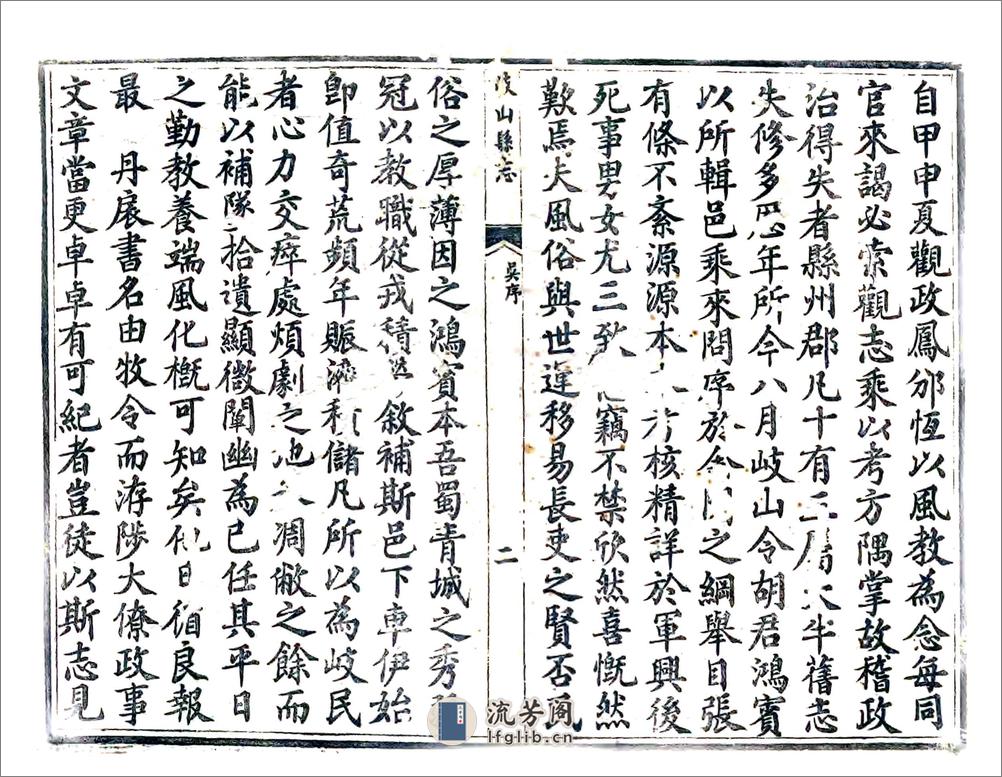 自甲申夏觀政鳳邠恆以風教為念每同
官來謁必索觀志乘以考方隅掌故稽政
治得失者縣州郡凡十有三屬大半舊志
失修多歷年所今八月岐山令胡君鴻賓
以所輯邑乘來問序於余閱之綱舉目張
有條不紊源源本本考核精詳於軍興後
死事男女尤三致竊不禁欣然喜慨然
歎焉夫風俗與世運移易長吏之賢否民
岐山縣志
吳序
二
俗之厚薄因之鴻賓本吾蜀青城之秀
冠以教職從戎積敘補斯邑下車伊始
即值奇荒頻年賑濟積儲凡所以為岐民
者心力交瘁處煩劇之地凋敝之餘而
能以補隊拾遺顯微闡幽為已任其平日
之勤教養端風化概可知矣他日循良報
最 丹扆書名由牧令而洊陟大僚政事
文章當更卓卓有可紀者豈徒以斯志見
流芳阁
lfglib.cn